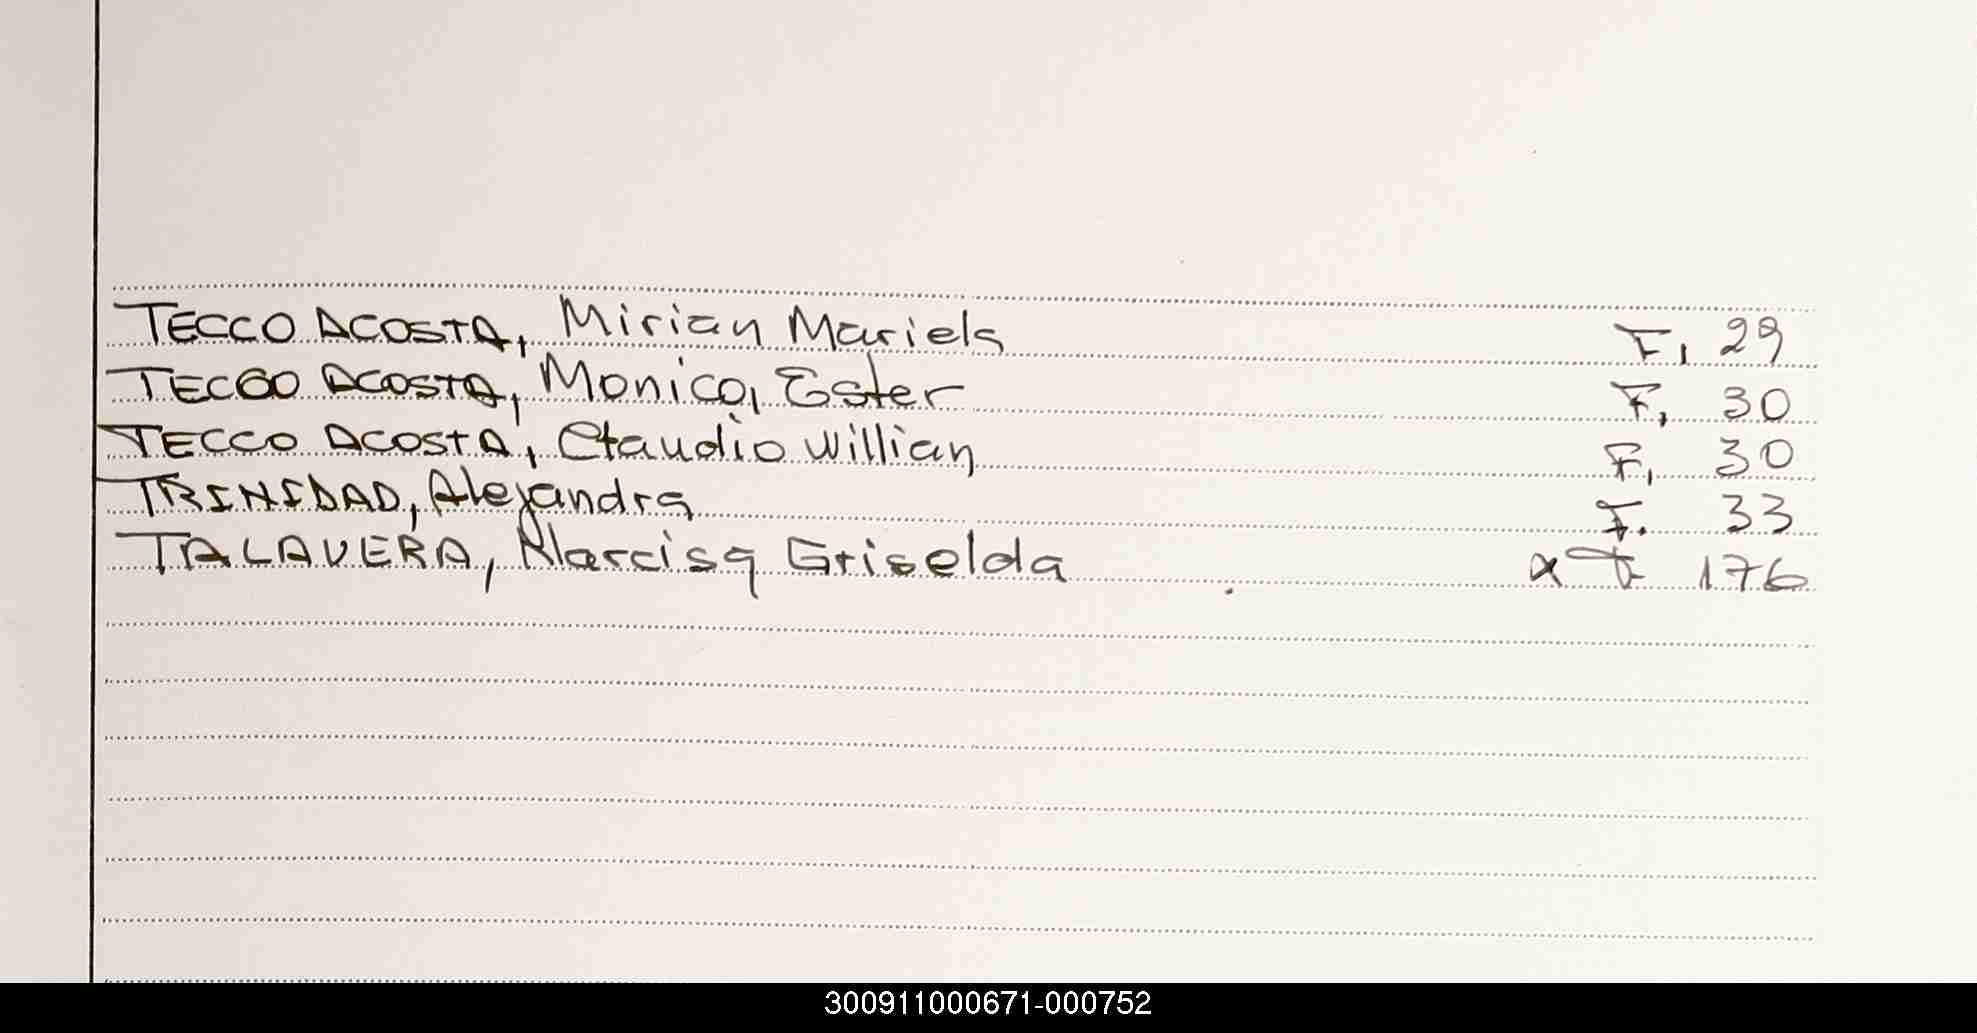 TECCO ACOSTA, Mirian Mariela F, 29
TECCO ACOSTA, Monica, Ester F, 30
TECCO ACOSTA, Claudio Willian F, 30
TRINIDAD, Alejandra F. 33
TALAVERA, Narcisa Griselda x F 176
300911000671-000752